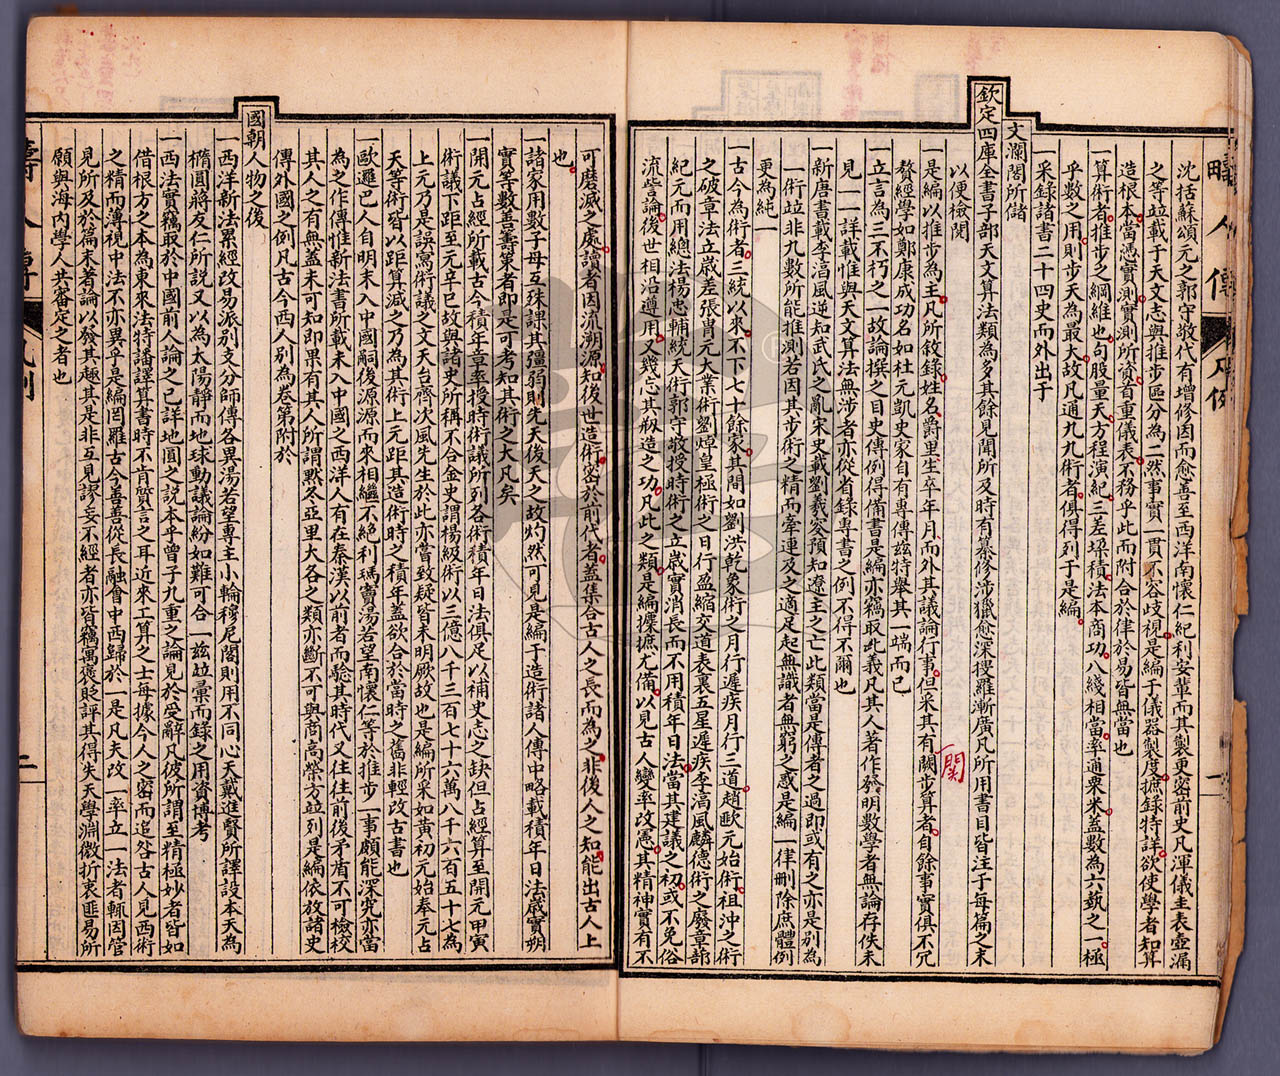 疇人傳 凡例 一
沈括蘇頌元之郭守敬代有增修因而愈善至西洋南懷仁紀利安輩而其製更密前史凡渾儀圭表壺漏
之等竝載于天文志與推步區分為二然事實一貫不容歧視是編于儀器製度摭錄特詳欲使學者知算
造根本當憑實測實測所資首重儀表不務乎此而附合於律於易皆無當也
一算術者推步之綱維也句股量天方程演紀三差垛積法本商功八綫相當率通衆米蓋數為六蓺之一極
乎數之用則步天為最大故凡通九九術者俱得列于是編
一采錄諸書二十四史而外出于
文瀾閣所儲
欽定四庫全書子部天文算法類為多其餘見聞所及時有纂修涉獵愈深搜羅漸廣凡所用書目皆注于每篇之末
以便檢閱
一是編以推步為主凡所敘錄姓名爵里生卒年月而外其議論行事但采其有闕步算者自餘事實俱不冗
關
贅經學如鄭康成功名如杜元凱史家自有專傳茲特舉其一端而已
一立言為三不朽之一故論撰之目史傳例得備書是編亦竊取此義凡其人著作發明數學者無論存佚未
見一一詳載惟與天文算法無涉者亦從省錄專書之例不得不爾也
一新唐書載李淳風逆知武氏之亂宋史載劉羲叟預知遼主之亡此類當是傳者之過即或有之亦是別為
一術竝非九數所能推測若因其步術之精而牽連及之適足起無識者無窮之惑是編一律刪除庶體例
更為純一
一古今為術者三統以來不下七十餘家其間如劉洪乾象術之月行遲疾月行三道趙歐元始術祖沖之術
之破章法立歲差張胄元大業術劉焯皇極術之日行盈縮交道表裏五星遲疾李淳風麟德術之廢章蔀
紀元而用總法楊忠輔統天術郭守敬授時術之立歲實消長而不用積年日法當其建議之初或不免俗
流訾論後世相沿遵用又幾忘其剏造之功凡此之類是編攗摭尤備以見古人變率改憲其精神實有不
可磨滅之處讀者因流溯源知後世造術密於前代者蓋集合古人之長而為之非後人之知能出古人上
也
諸家用數子母互殊課其彊弱則先天後天之故灼然可見是編于造術諸人傳中略載積年日法歲實朔
實等數善籌策者即是可考知其術之大凡矣
一開元占經所載古今積年章率授時術議所列各術積年日法俱足以補史志之缺但占經算至開元甲寅
術議下距至元辛巳故與諸史所稱不合金史謂楊級術以三億八千三百七十六萬八千六百五十七為
上元乃是誤寫術議之文天台齊次風先生於此亦嘗致疑皆未明厥故也是編所采如黃初元始奉元占
天等術皆以距算減之乃為其術上元距其造術時之積年蓋欲合於當時之舊非輕改古書也
一歐邏巴人自明末入中國嗣後源源而來相繼不絕利瑪竇湯若望南懷仁等於推步一事頗能深究亦當
為之作傳惟新法書所載未入中國之西洋人有在秦漢以前者而驗其時代又往往前後矛盾不可檢校
其人之有無蓋未可知即果有其人所謂默冬亞里大各之類亦斷不可與商高榮方竝列是編依放諸史
傳外國之例凡古今西人別為卷第附於
國朝人物之後
一西洋新法累經改易派別支分師傳各異湯若望專主小輪穆尼閣則用不同心天戴進賢所譯設本天為
橢圓將友仁所說又以為太陽靜而地球動議論紛如難可合一茲竝彙而錄之用資博考
一西法實竊取於中國前人論之已詳地圓之說本乎曾子九重之論見於楚辭凡彼所謂至精極妙者皆如
借根方之本為東來法特譒譯算書時不肯質言之耳近來工算之士每據今人之密而追咎古人見西術
之精而薄視中法不亦異乎是編罔羅古今善善從長融會中西歸於一是凡夫改一率立一法者輒因管
見所及於篇末著論以發其趣其是非互見謬妄不經者亦皆竊寓褒貶評其得失天學淵微折衷匪易所
願與海內學人共審定之者也
疇人傳 凡例 二